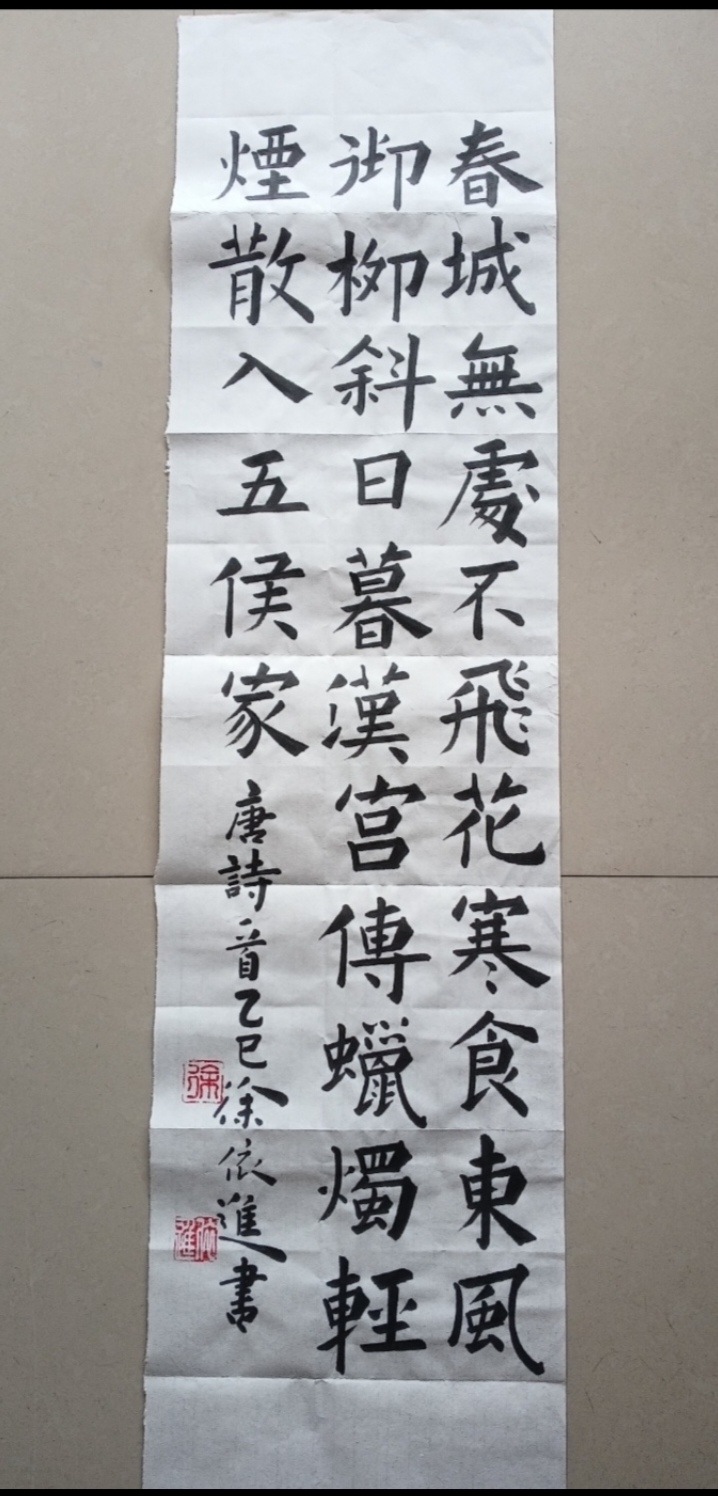 春城無處不飛花寒食東風
御柳斜日暮漢宮傳蠟燭輕
煙散入五侯家唐詩一首乙巳徐依進書
徐
依進